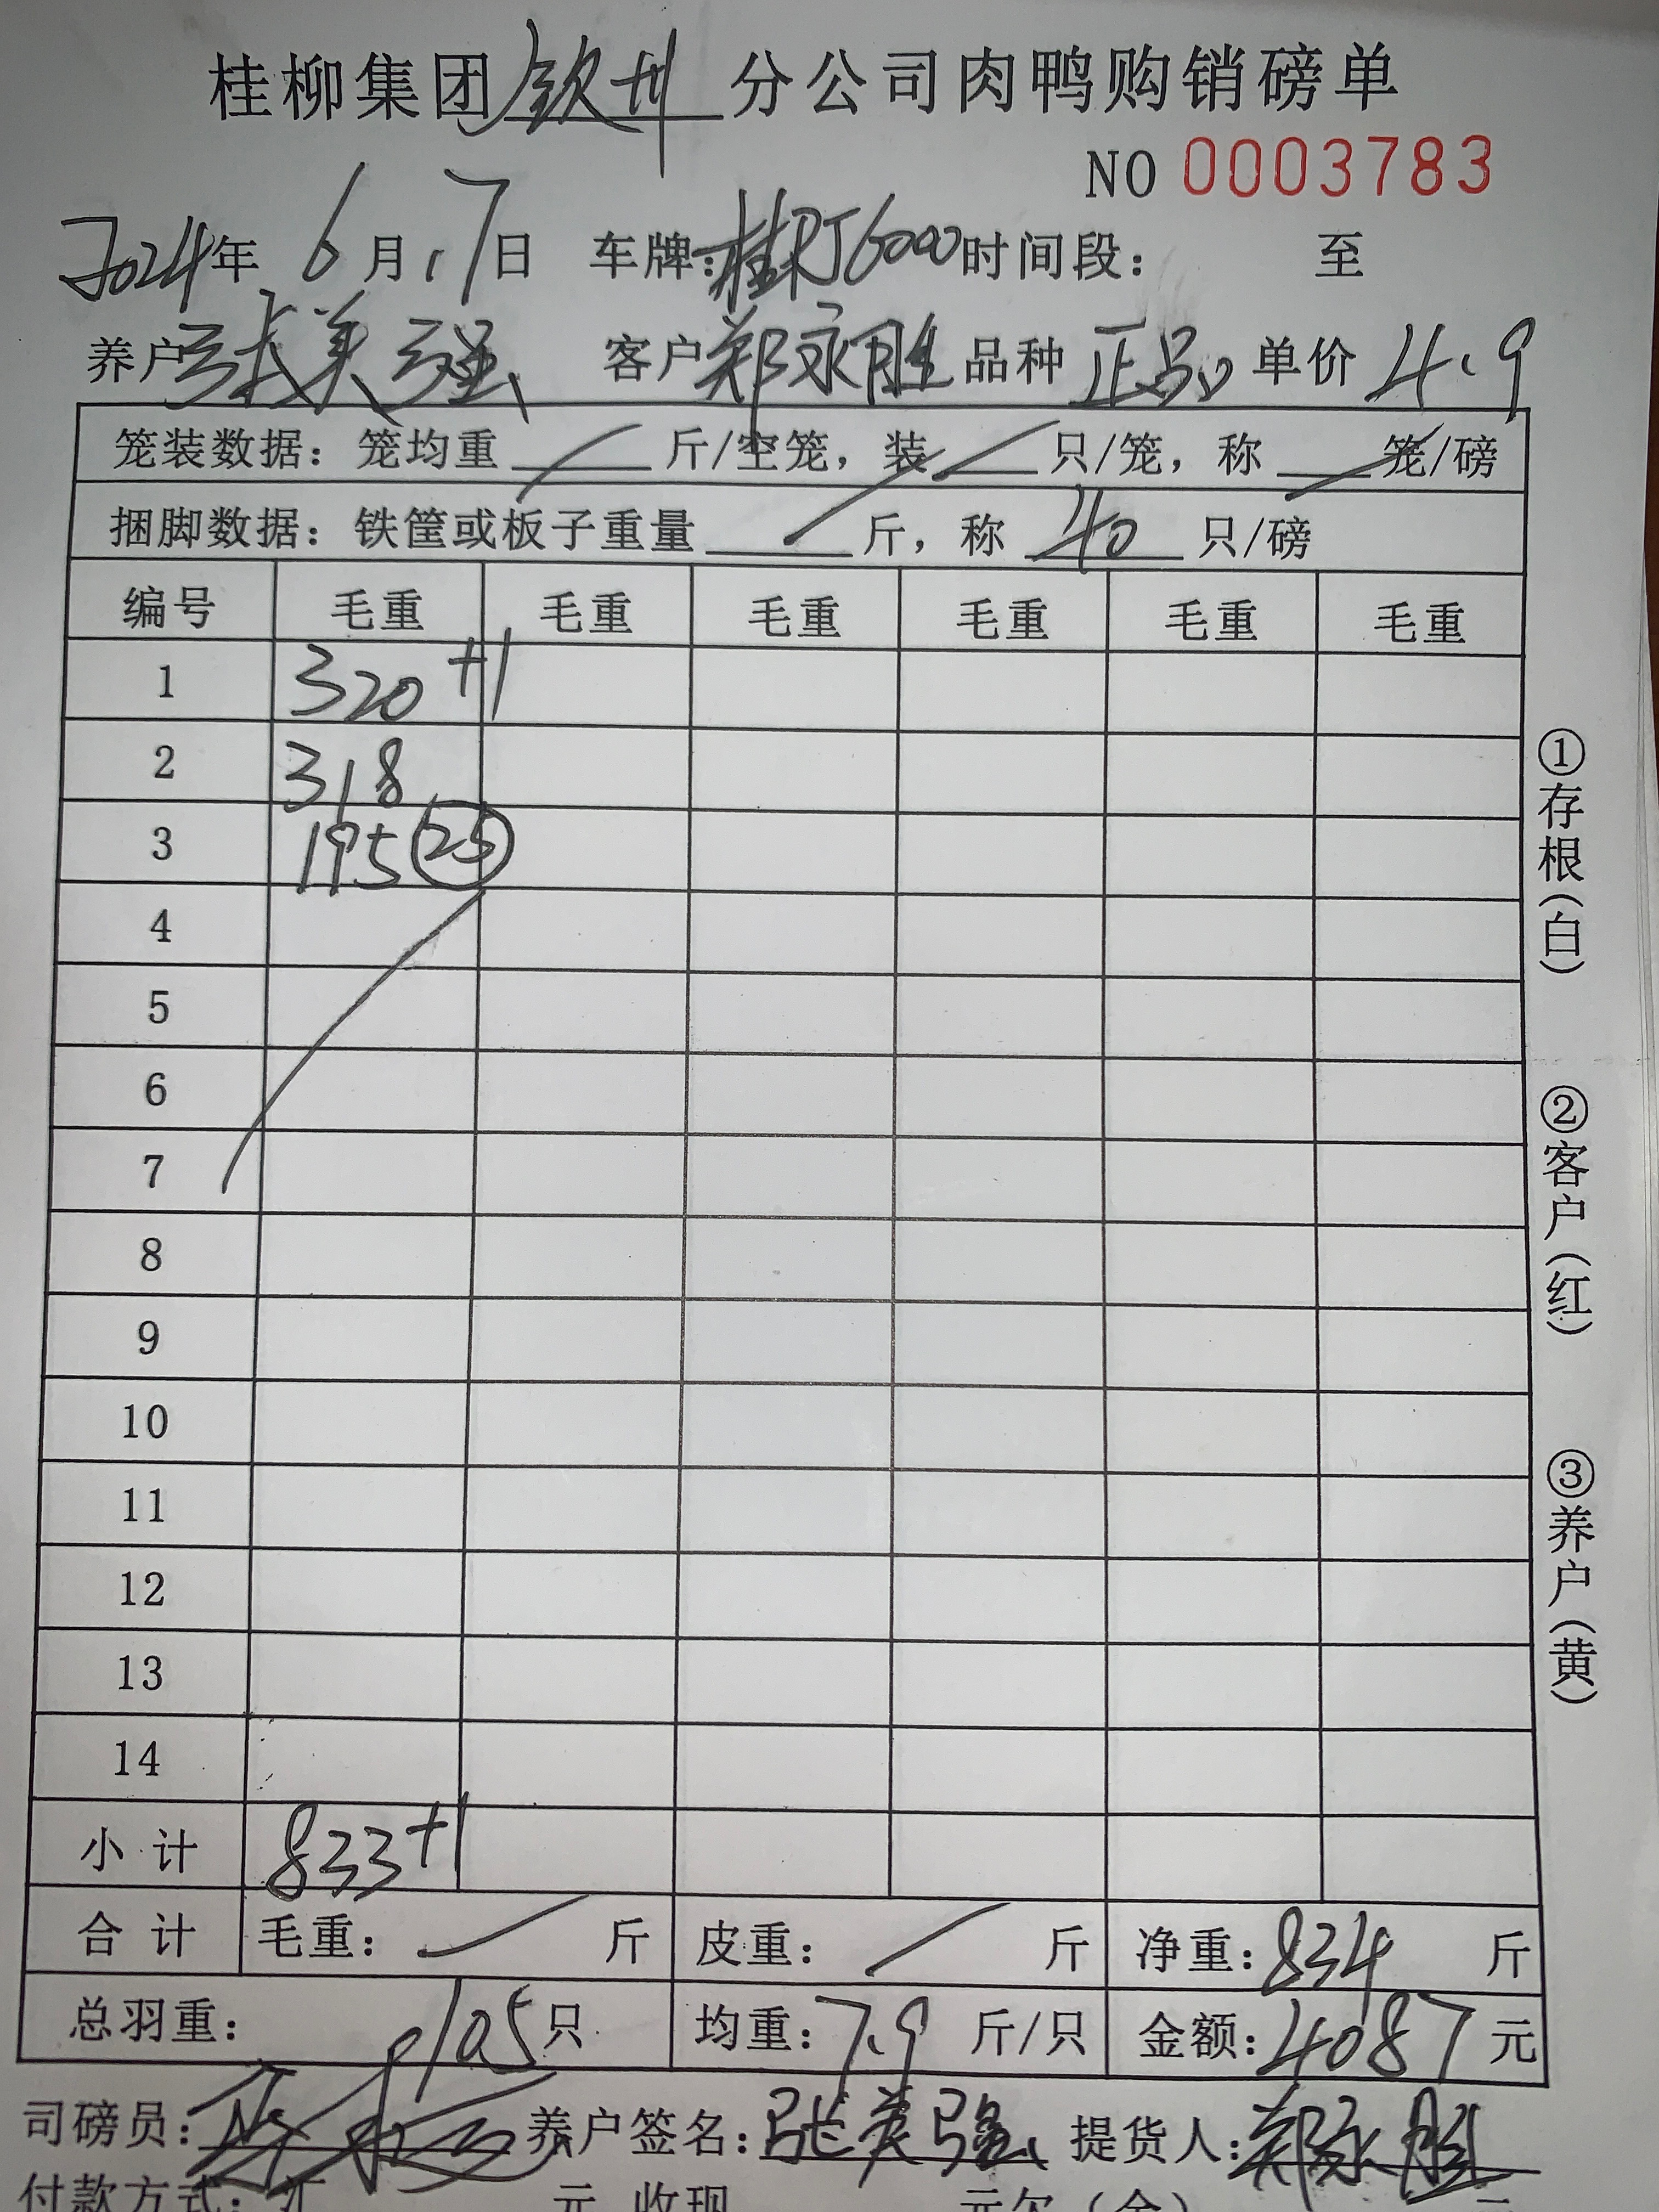 桂柳集团钦州分公司肉鸭购销磅单
NO 0003783
2024年 6月17日 车牌:桂RJ6000时间段: 至
养户张美强 客户郑永胜 品种 正品 单价 4.9
笼装数据: 笼均重 / 斤/空笼, 装 / 只/笼, 称 / 笼/磅
捆脚数据: 铁筐或板子重量 / 斤, 称 40 只/磅
编号 毛重 毛重 毛重 毛重 毛重 毛重
1 320 +1
2 318
3 195 (25)
4
5
6
7
8
9
10
11
12
13
14
小计 833+1
合计 毛重: / 斤 皮重: / 斤 净重:834 斤
总羽重: 105只 均重:7.9 斤/只 金额:4087元
司磅员: 养户签名:张美强 提货人:郑永胜
付款方式:汇 元 收现 元欠(余) 元
①存根(白)
②客户(红)
③养户(黄)